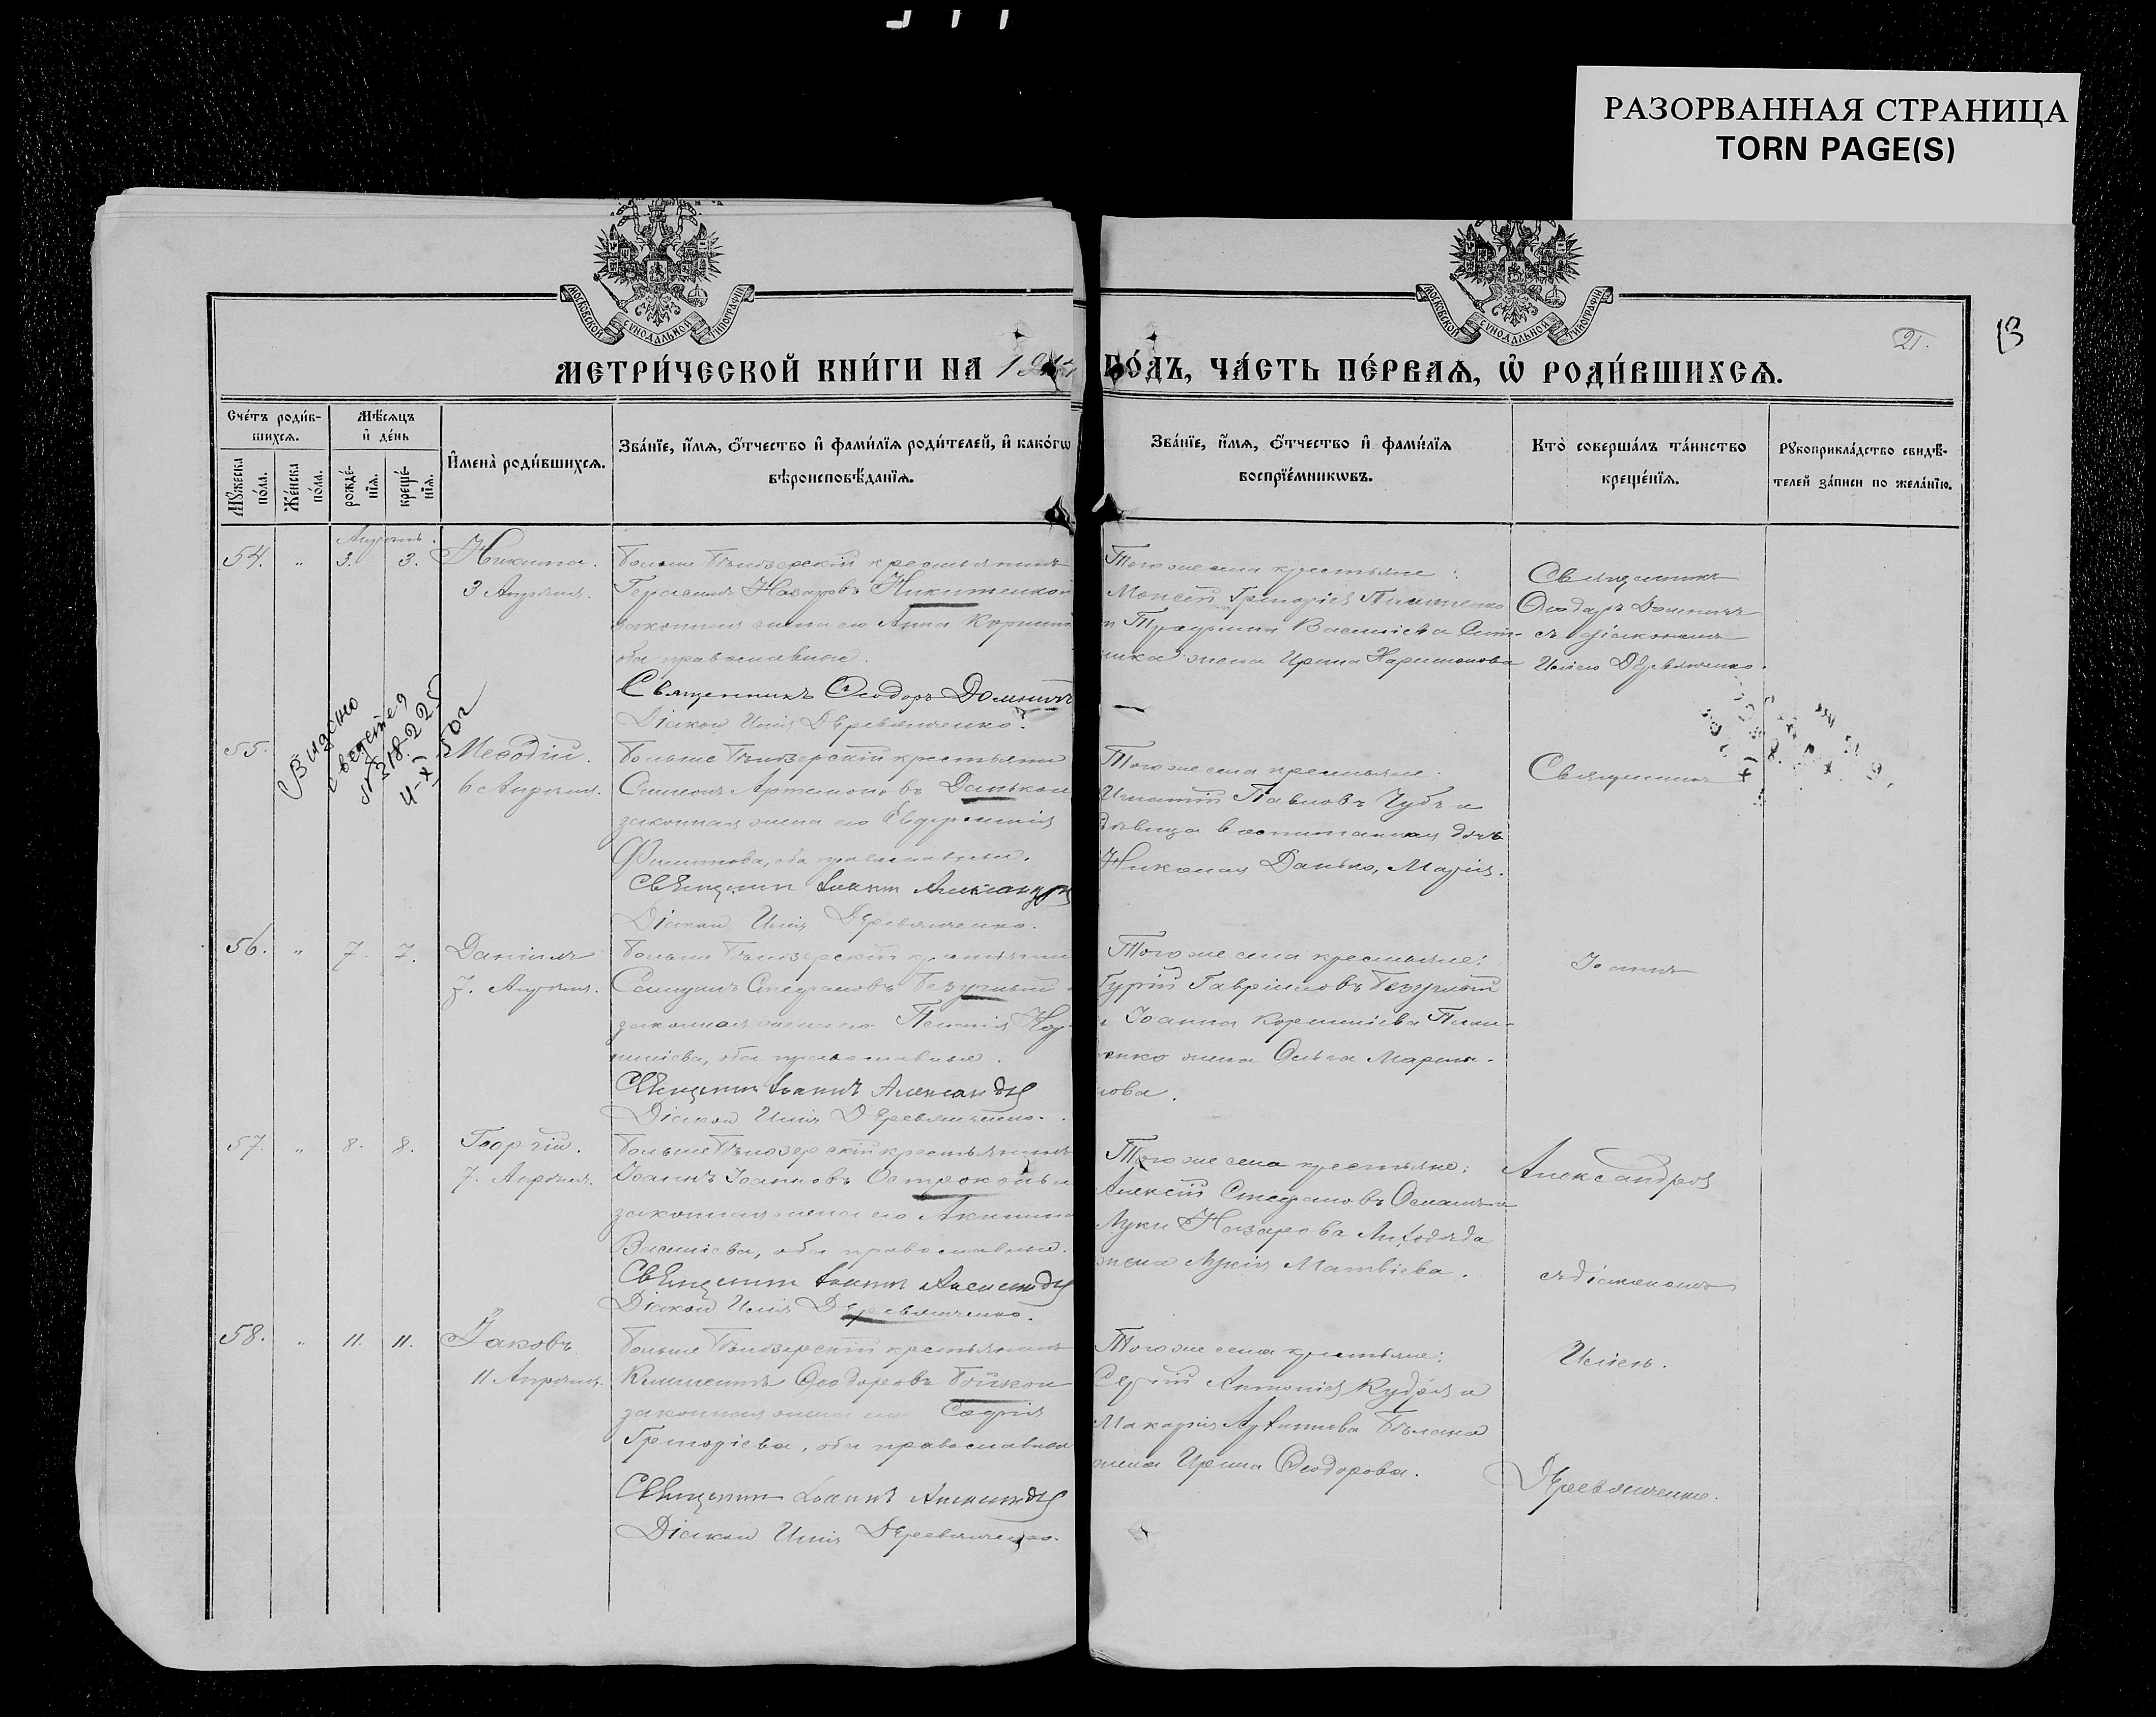 РАЗОРВАННАЯ СТРАНИЦА
TORN PAGE(S)
МОСКОВСКОЙ СѴНОДАЛЬНОЙ ТИПОГРАФІИ
МОСКОВСКОЙ СѴНОДАЛЬНОЙ ТИПОГРАФІИ
21.
13
МЕТРИ́ЧЕСКОЙ КНИ́ГИ НА
ГО́ДЪ, ЧА́СТЬ ПЕ́РВАѦ, Ѡ҆ РОДИ́ВШИХСѦ.
Сче́тъ роди́в-
шихсѧ.
Мѣ́сѧцъ
и҆ де́нь
Мꙋ́жеска
по́ла.
Же́нска
по́ла.
рожде́-
нїѧ.
креще́-
нїѧ.
И҆мена̀ роди́вшихсѧ.
Зва́нїе, и҆́мѧ, ѻ҆́тчество и҆ фами́лїѧ роди́телей, и҆ како́гѡ
вѣроисповѣ́данїѧ.
Зва́нїе, и҆́мѧ, ѻ҆́тчество и҆ фами́лїѧ
воспрїе́мникѡвъ.
Кто̀ соверша́лъ та́инство
креще́нїѧ.
Рꙋкоприкла́дство свидѣ́-
телей за́писи по жела́нїю.
Апрѣль.
54. " 3. 3. Никита.
3 Апрѣля.
Больше Бѣлозерскій крестьянинъ
Герасимъ Назаровъ Никитенко и
законная жена его Анна
оба православные.
Священникъ Ѳеодоръ Домничъ
Діаконъ Илія Деревянченко.
Того же села крестьяне:
Моисей Григоріев
Васильева
жена Ирина Харитонова
Священникъ
Ѳеодоръ Домничъ
съ діакономъ
Иліею Деревянченко.
Видано
55. Меѳодій.
6 Апрѣля.
Больше Бѣлозерскій крестьянин
Симеонъ Артамоновъ Данько и
законная жена его Евфросинія
Филиппова, оба православные.
Священникъ Іоаннъ Александров
Діаконъ Илія Деревянченко.
Того же села крестьяне:
Игнатій Павловъ Чубъ и
дѣвица воспитанная дочь
Николая Данько, Марія.
Священникъ
56. " 7. 7. Даніилъ
7. Апрѣля.
Больше Бѣлозерскій крестьянин
Самуилъ Стефановъ Безуглый
законная жена его Пелагія
оба православные.
Священникъ Іоаннъ Александров
Діаконъ Илія Деревянченко.
Того же села крестьяне:
Гурій Гавріиловъ Безуглый
и Іоанна Корниліева
жена Ольга Марти-
нова.
Іоаннъ
57. " 8. 8. Георгій.
7. Апрѣля.
Больше Бѣлозерскій крестьянинъ
Іоаннъ Іоанновъ
законная жена его Акилина
Васильева, оба православные.
Священникъ Іоаннъ Александров
Діаконъ Илія Деревянченко.
Того же села крестьяне:
Алексій Стефановъ
Луки Назарова Лиходѣда
жена Лукія Матвѣева.
Александров
съ діакономъ
58. " 11. 11. Іаковъ.
11 Апрѣля.
Больше Бѣлозерскій крестьянинъ
Климентъ Ѳеодоровъ Бойко и
законная жена его Софія
Григоріева, оба православные
Священникъ Іоаннъ Александров
Діаконъ Илія Деревянченко.
Того же села крестьяне:
Сергій Антоніев и
Макарія
жена Ирина Ѳеодорова.
Иліею.
Деревянченко.